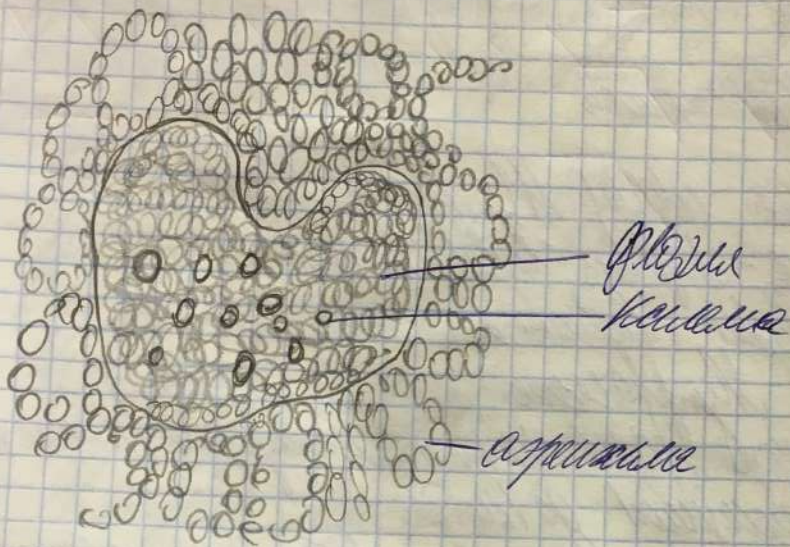 флоэма
ксилема
аэренхима